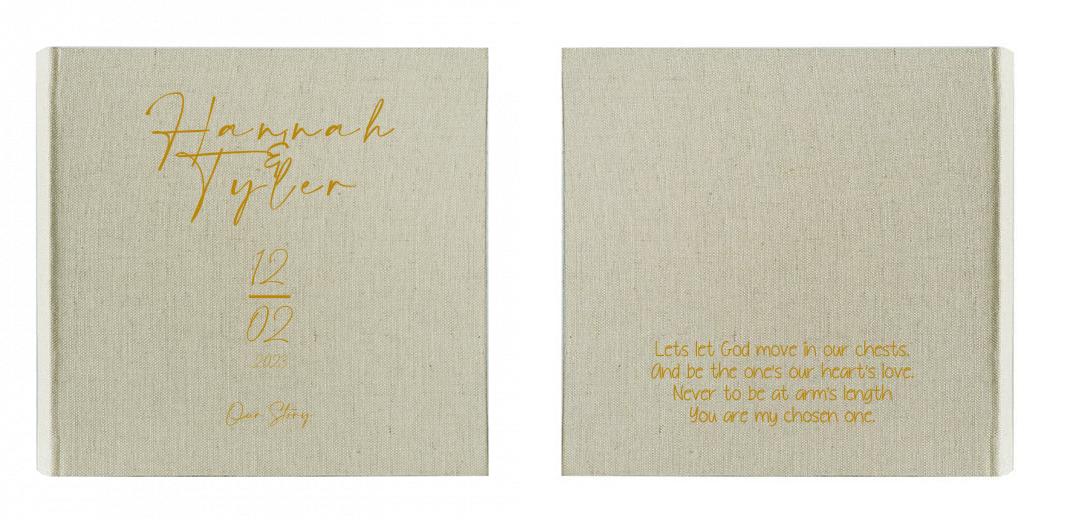 Hannah
&
Tyler
12
02
2023
Our Story
Lets let God move in our chests.
And be the one's our heart's love.
Never to be at arm's length
You are my chosen one.